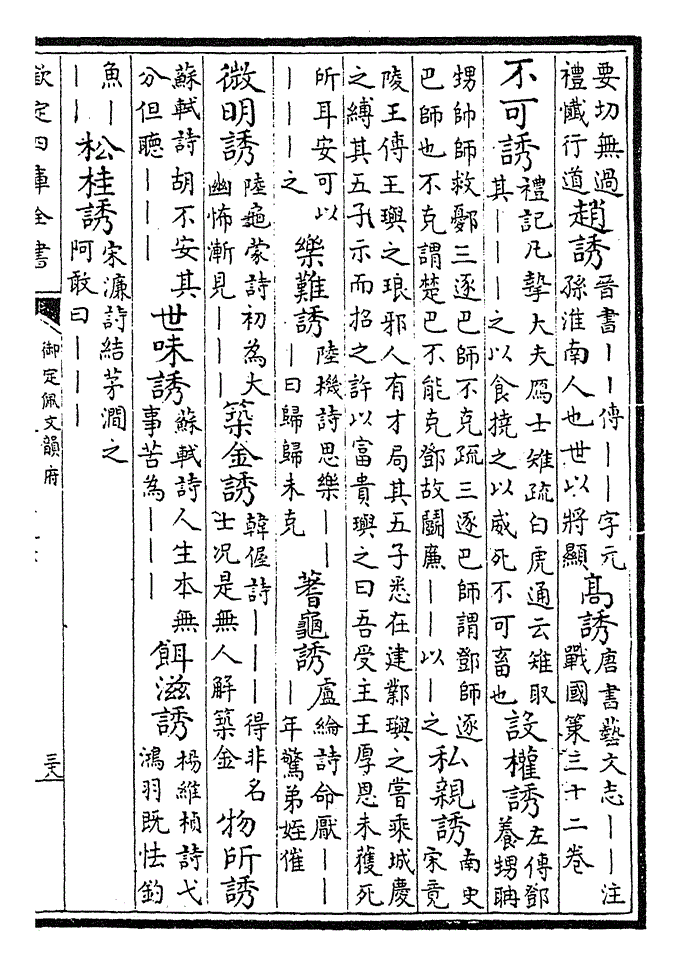 要切無過
禮懺行道
趙誘
晉書｜｜傳｜｜字元
孫淮南人也世以將顯
高誘
唐書藝文志｜｜注
戰國策三十二卷
不可誘
禮記凡摯大夫鴈士雉疏白虎通云雉取
其｜｜｜之以食撓之以威死不可畜也
設權誘
左傳鄧
養甥聃
甥帥師救鄾三逐巴師不克疏三逐巴師謂鄧師逐
巴師也不克謂楚巴不能克鄧故鬭廉｜｜以｜之
私親誘
南史
宋竟
陵王傳王璵之琅邪人有才局其五子悉在建鄴璵之嘗乘城慶
之縛其五子示而招之許以富貴璵之曰吾受主王厚恩未獲死
所耳安可以
｜｜｜｜之
樂難誘
陸機詩思樂｜｜
｜曰歸歸未克
蓍龜誘
盧綸詩命厭｜｜
｜年驚弟姪催
微明誘
陸龜蒙詩初為大
幽怖漸見｜｜｜
築金誘
韓偓詩｜｜｜得非名
士況是無人解築金
物所誘
蘇軾詩胡不安其
分但聽｜｜｜
世味誘
蘇軾詩人生本無
事苦為｜｜｜
餌滋誘
楊維楨詩弋
鴻羽既怯釣
魚｜
｜｜
松桂誘
宋濂詩結茅澗之
阿敢曰｜｜｜
欽定四庫全書
御定佩文韻府